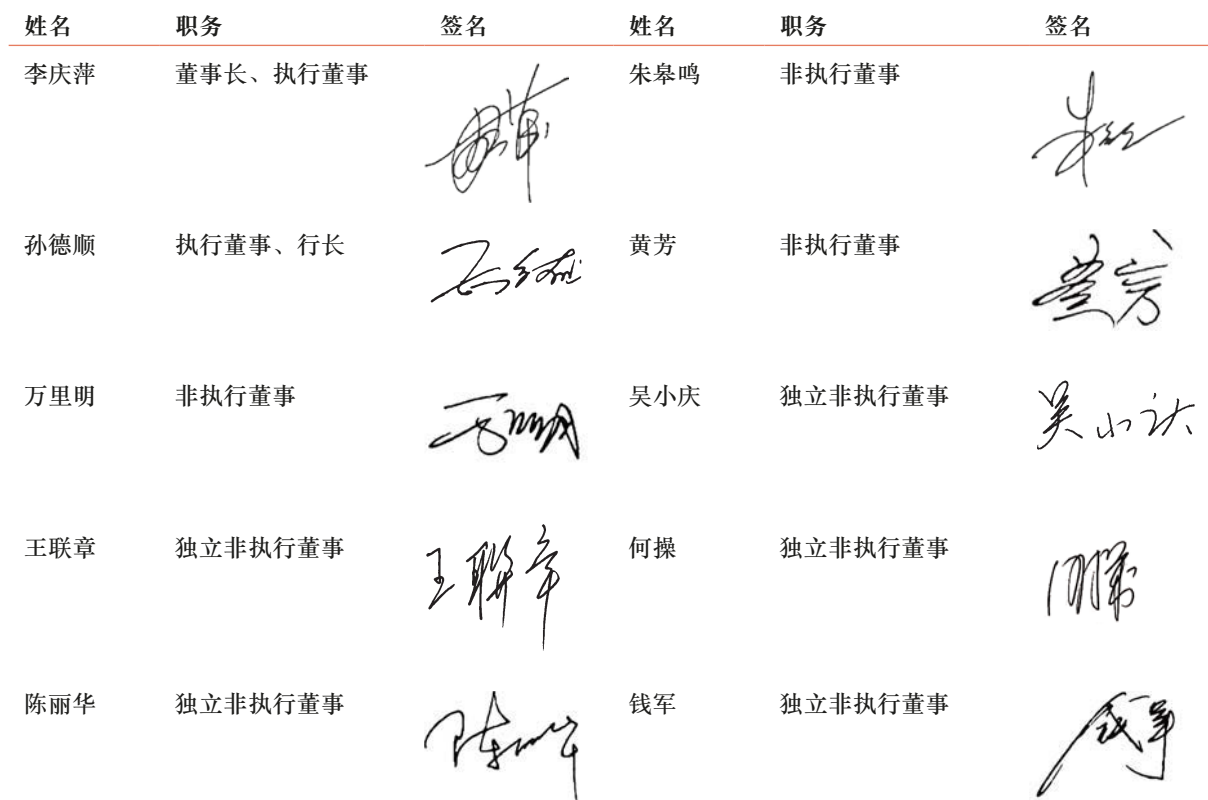 姓名 职务 签名 姓名 职务 签名
李庆萍 董事长、执行董事 朱皋鸣 非执行董事
孙德顺 执行董事、行长 黄芳 非执行董事
万里明 非执行董事 吴小庆 独立非执行董事
王联章 独立非执行董事 王聯章 何操 独立非执行董事
陈丽华 独立非执行董事 钱军 独立非执行董事